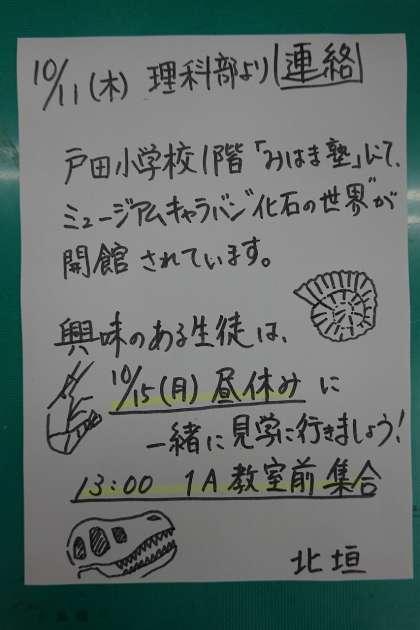 10/11(木) 理科部より 連絡
戸田小学校1階「みはま塾」にて、
ミュージアムキャラバン"化石の世界"が
開館されています。
興味のある生徒は、
10/15(月)昼休みに
一緒に見学に行きましょう!
13:00 1A教室前集合
北垣